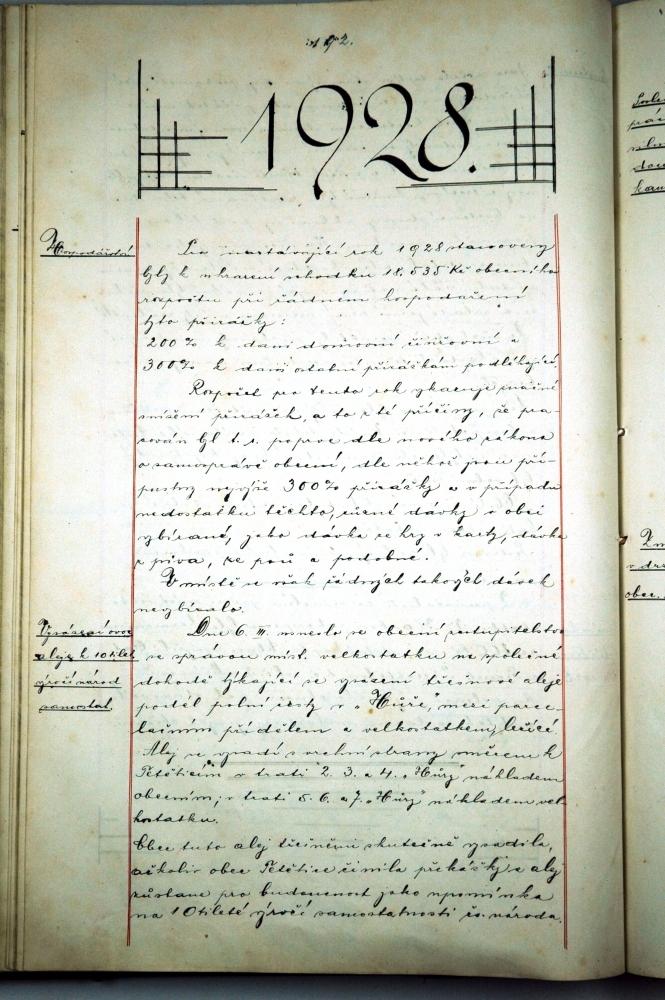 192.
1928.
Hospodářství
Pro nastávající rok 1928 stanoveny
byly k uhrazení schodku 18.535 Kč obecního
rozpočtu při řádném hospodaření
tyto přirážky:
200% k dani domovní činžovní a
300% k dani ostatní přirážkám podléhající.
Rozpočet pro tento rok vykazuje značné
snížení přirážek, a to z té příčiny, že pra-
cován byl t. r. poprve dle nového zákona
o samosprávě obecní, dle něhož jsou pří-
pustny nejvýše 300% přirážky a v případu
nedostatku těchto, různé dávky v obci
vybírané, jako dávka ze hry v karty, dávka
z piva, ze psů a podobné.
V místě se však žádných takových dávek
nevybíralo.
Vysázení ovoc.
aleje k 10tileté
výročí národ
samostat.
Dne 6. III. usneslo se obecní zastupitelstvo
se správou míst. velkostatku na společné
dohodě týkající se vysázení třešňové aleje
podél polní cesty v „Hůře", mezi parce-
lačním přídělem a velkostatkem, ležící
Alej se vysadí s vrchní strany směrem k
Petěticím v trati 2. 3. a 4. „Hůry" nákladem
obecním; v trati 5. 6. a 7. „Hůry" nákladem vel-
kostatku.
Obec tuto alej třešněmi skutečně vysadila,
ačkoliv obec Petětice činila překážky a alej
zůstane pro budoucnost jako upomínka
na 10tileté výročí samostatnosti čs. národa.